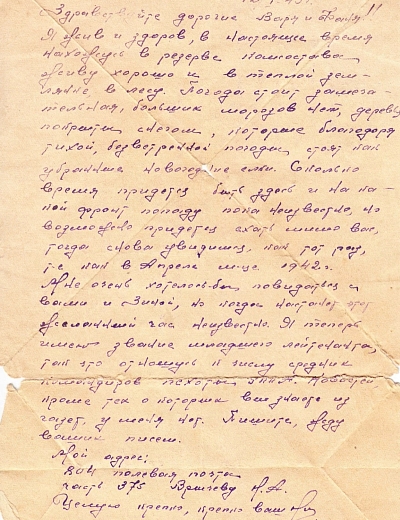 Здравствуйте дорогие Варя и Таня!!
Я жив и здоров, в настоящее время
нахожусь в резерве комсостава
живу хорошо и в теплой зем-
лянке в лесу. Погода стоит замеча-
тельная, больших морозов нет, деревья
покрыты снегом, которые благодаря
тихой, безветренной погоды стоят как
убранные новогодние елки. Сколько
время придется быть здесь и на ка-
кой фронт попаду пока неизвестно, но
возможно придется ехать мимо вас,
тогда снова увидимся, как тот раз,
т-е как в Апреле м-це 1942 г.
Мне очень хотелось-бы повидаться с
вами и Зиной, но когда настанет этот
желанный час неизвестно. Я теперь
имею звание младшего лейтенанта,
так что отношусь к числу средних
командиров пехоты Новостей
кроме тех о которых вы знаете из
газет, у меня нет. Пишите, жду
ваших писем.
Мой адрес:
полевая почта
часть 375
Целую крепко, крепко ваш